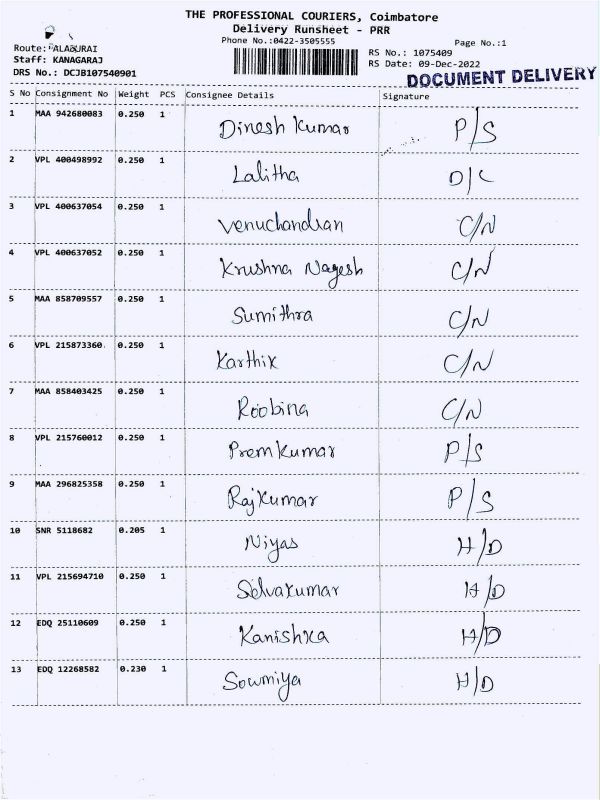 THE PROFESSIONAL COURIERS, Coimbatore
Delivery Runsheet - PRR
Phone No.:0422-3505555
Page No.:1
Route: PALADURAI
Staff: KANAGARAJ
DRS No.: DCJB107540901
RS No.: 1075409
RS Date: 09-Dec-2022
DOCUMENT DELIVERY
S No Consignment No Weight PCS Consignee Details Signature
1 MAA 942680083 0.250 1 Dinesh Kumar P/S
2 VPL 400498992 0.250 1 Lalitha D/C
3 VPL 400637054 0.250 1 Venuchandran C/N
4 VPL 400637052 0.250 1 Krushna Nagesh C/N
5 MAA 858709557 0.250 1 Sumithra C/N
6 VPL 215873360 0.250 1 Karthik C/N
7 MAA 858403425 0.250 1 Roobina C/N
8 VPL 215760012 0.250 1 Prem Kumar P/S
9 MAA 296825358 0.250 1 Raj Kumar P/S
10 SNR 5118682 0.205 1 Niyas H/D
11 VPL 215694710 0.250 1 Selvakumar H/D
12 EDQ 25110609 0.250 1 Kanishka H/D
13 EDQ 12268582 0.230 1 Sowmiya H/D